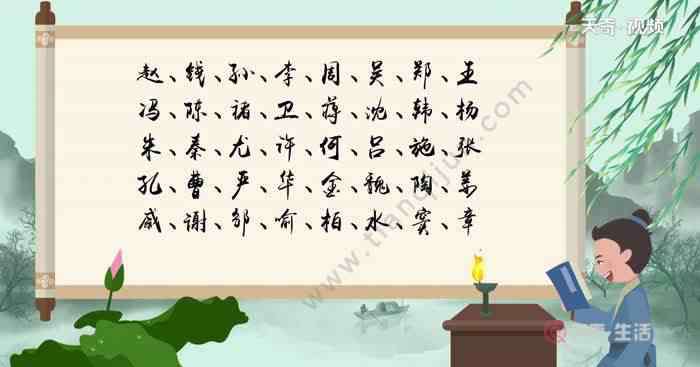 天奇·视频
赵、钱、孙、李、周、吴、郑、王
冯、陈、褚、卫、蒋、沈、韩、杨
朱、秦、尤、许、何、吕、施、张
孔、曹、严、华、金、魏、陶、姜
戚、谢、邹、喻、柏、水、窦、章
www.tianqijun.com
生活